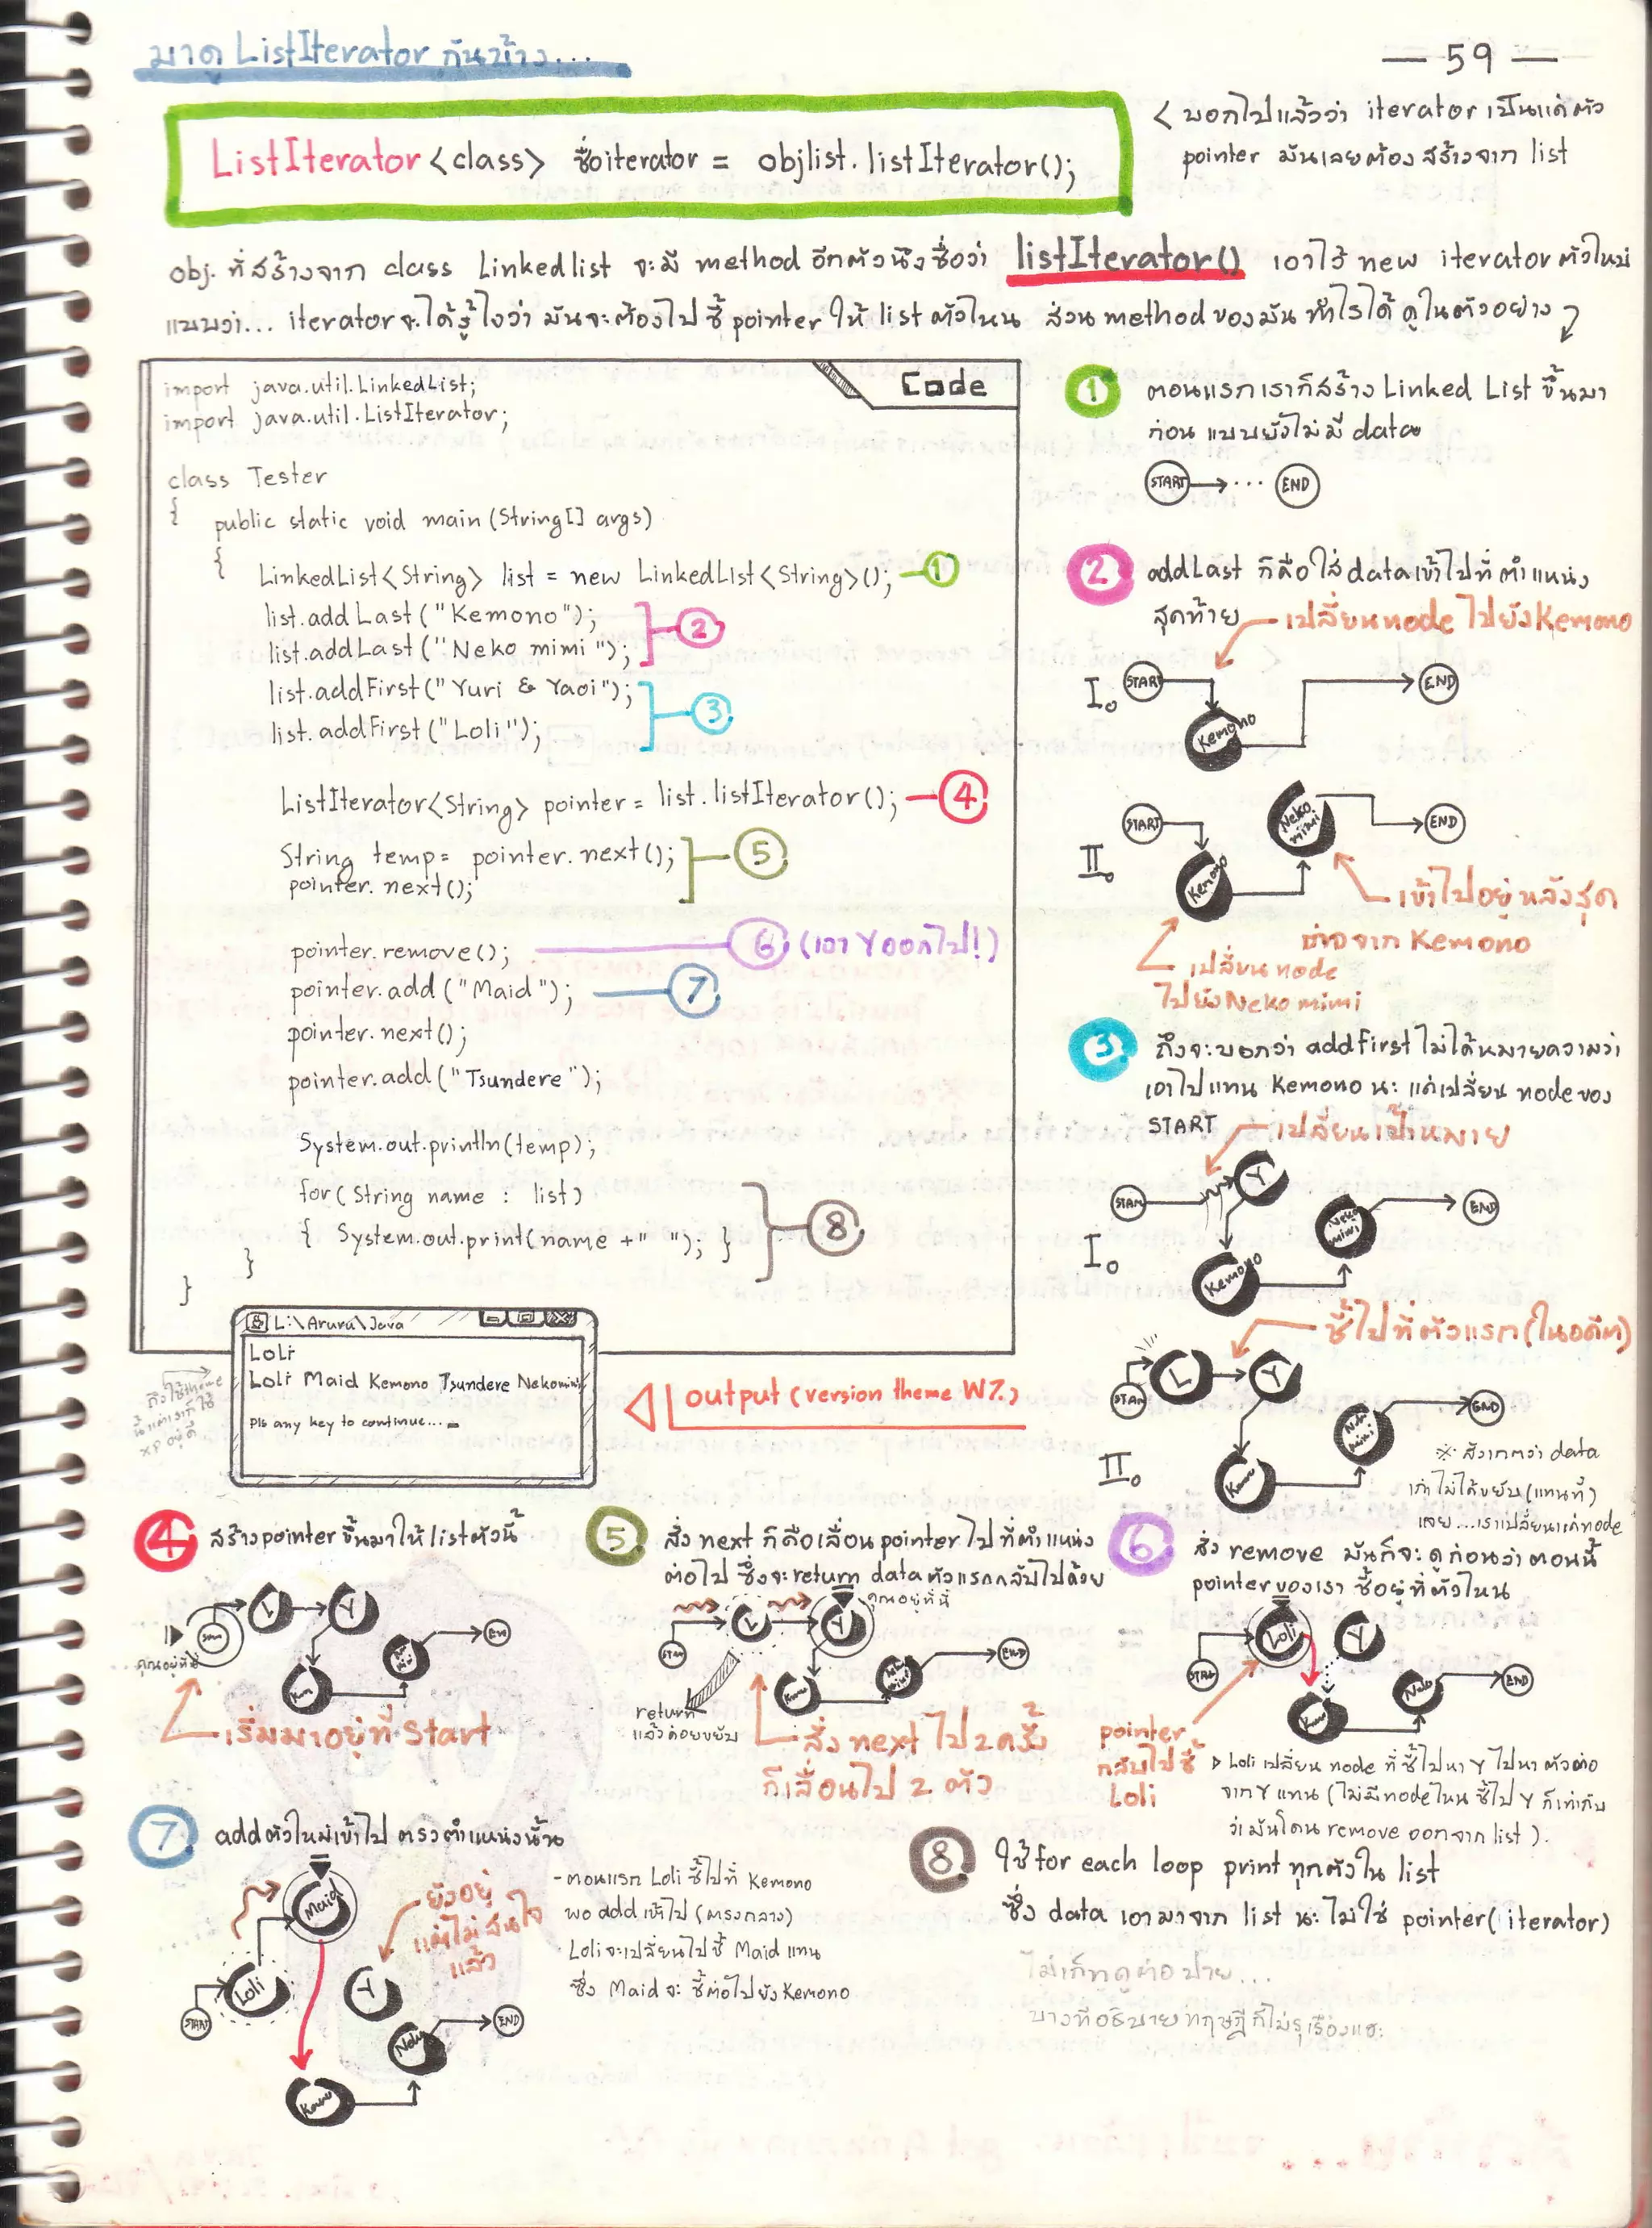 มาดู ListIterator กันบ้าง...
— 59 —
ListIterator<class> ชื่อiterator = objlist.listIterator();
< บอกไปแล้วว่า iterator เป็นแค่ตัว
pointer มันเลยต้องสร้างจาก list
obj. ที่สร้างจาก class Linkedlist จะมี method อีกตัวนึงชื่อว่า listIterator() เอาไว้ new iterator ตัวใหม่
แบบว่า... iterator จะได้รู้ไงว่า มันจะต้องไปชี้ pointer ให้ list ตัวไหน ส่วน method ของมัน ทำไรได้ ดูในตัวอย่าง
Code
import java.util.LinkedList;
import java.util.ListIterator;
class Tester
{ public static void main (String[] args)
{
LinkedList<String> list = new LinkedList<String>(); 1
list.addLast("Kemono");
list.addLast("Neko mimi"); 2
list.addFirst("Yuri & Yaoi");
list.addFirst("Loli"); 3
ListIterator<String> pointer = list.listIterator(); 4
String temp = pointer.next(); 5
pointer.next();
pointer.remove(); 6 (เอา Y ออกไป!)
pointer.add("Maid"); 7
pointer.next();
pointer.add("Tsundere");
System.out.println(temp);
for(String name : list)
{ System.out.print(name +" "); } 8
}
}
L:\Aruru\Java
Loli
Loli Maid Kemono Tsundere Nekomimi
Pls any key to continue..._
ถึงใช้ theme
นี้ แต่เราก็ใช้
XP อยู่ดี
output (version theme W7.)
1 ตอนแรกเราก็สร้าง Linked List ขึ้นมา
ก่อน แบบยังไม่มี data
START ... END
2 addLast ก็คือใส่ data เข้าไปที่ตำแหน่ง
สุดท้าย เปลี่ยน node ไปยัง Kemono
I. START END
Kemono
II. START Neko mimi END
Kemono
เข้าไปอยู่หลังสุด
ต่อจาก Kemono
เปลี่ยน node
ไปยัง Neko mimi
3 ถึงจะบอกว่า addFirst ไม่ได้หมายความว่า
เอาไปแทน Kemono นะ แค่เปลี่ยน node ของ
START เปลี่ยนเป้าหมาย
I. START Y Neko mimi END
Kemono
ชี้ไปที่ตัวแรก (ในอดีต)
II. START L Y END
Neko mimi
Kemo
※ สังเกตว่า data
เก่าไม่ได้ขยับ (แทนที่)
เลย...เราเปลี่ยนแค่ node
4 สร้าง pointer ขึ้นมาให้ list ตัวนี้
Start L Y END
...คุณอยู่ที่นี่
เริ่มมาอยู่ที่ Start
5 สั่ง next ก็คือเลื่อน pointer ไปที่ตำแหน่ง
ต่อไป ซึ่งจะ return data ตัวแรกกลับไปด้วย
คุณอยู่ที่นี่
START L Y END
return
แล้วค่อยขยับ
สั่ง next ไป 2 ครั้ง
ก็เลื่อนไป 2 ตัว
6 สั่ง remove มันก็จะดูก่อนว่าตอนนี้
pointer ของเรา ชี้อยู่ที่ตัวไหน
START Loli Y Neko END
pointer
กลับไปชี้
Loli
Loli เปลี่ยน node ที่ชี้ไปหา Y ไปหาตัวต่อ
จาก Y แทน (ไม่มี node ไหน ชี้ไป Y ก็เท่ากับ
ว่ามันโดน remove ออกจาก list).
7 add ตัวใหม่เข้าไป ตรงตำแหน่งนั้น
Maid
Loli
START
Y
Neko END
Kemo
ยังอยู่
แต่ไม่สนใจ
แล้ว
- ตอนแรก Loli ชี้ไปที่ Kemono
พอ add เข้าไป (ตรงกลาง)
Loli จะเปลี่ยนไปชี้ Maid แทน
ซึ่ง Maid จะ ชี้ต่อไปยัง Kemono
8 ใช้ for each loop print ทุกตัวใน list
ซึ่ง data เอามาจาก list นะ ไม่ใช่ pointer (iterator)
ไม่เก็ทดูต่อปาย...
บางทีอธิบายทฤษฎีก็ไม่รุเรื่องแฮะ